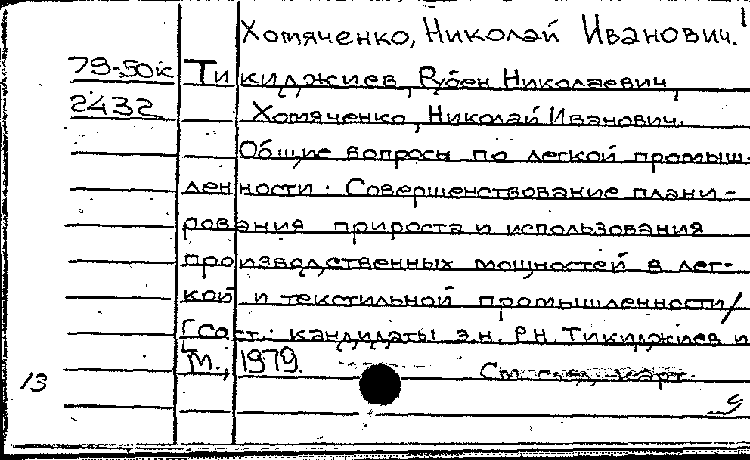 Хомяченко, Николай Иванович.
79-50к Тикиджиев, Рубен Николаевич,
2432 Хомяченко, Николай Иванович.
Общие вопросы по легкой промыш-
ленности. Совершенствование плани-
рования прироста и использования
производственных мощностей в лег-
кой и текстильной промышленности/
[Сост.: кандидаты э.н. Р.Н. Тикиджиев и
М., 1979.
13 См. след. карт.